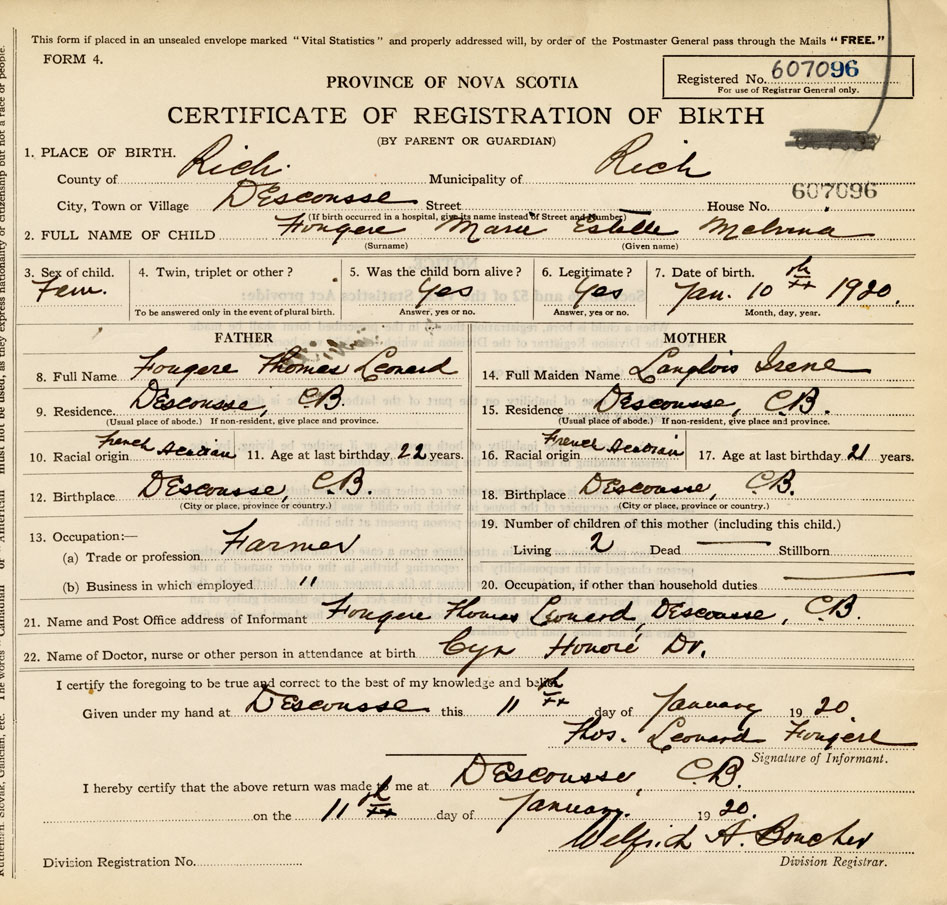 This form if placed in an unsealed envelope marked "Vital Statistics" and properly addressed will, by order of the Postmaster General pass through the Mails "FREE."
FORM 4.
Registered No. 607096
For use of Registrar General only.
PROVINCE OF NOVA SCOTIA
CERTIFICATE OF REGISTRATION OF BIRTH
(BY PARENT OR GUARDIAN)
1. PLACE OF BIRTH.
County of Rich. Municipality of Rich
607096
City, Town or Village DEscousse Street House No.
(If birth occurred in a hospital, give its name instead of Street and Number)
2. FULL NAME OF CHILD Fougere Marie Estelle Melvina
(Surname) (Given name)
3. Sex of child. 4. Twin, triplet or other? 5. Was the child born alive? 6. Legitimate? 7. Date of birth.
Fem. Yes Yes Jan. 10th 1920.
To be answered only in the event of plural birth. Answer, yes or no. Answer, yes or no. Month, day, year.
FATHER MOTHER
8. Full Name Fougere Thomas Leonard 14. Full Maiden Name Langlois Irene
9. Residence. DEscousse, C.B. 15. Residence DEscousse, C.B.
(Usual place of abode.) If non-resident, give place and province. (Usual place of abode.) If non-resident, give place and province.
10. Racial origin French Acadian 11. Age at last birthday 22 years. 16. Racial origin French Acadian 17. Age at last birthday 21 years.
12. Birthplace DEscousse, C.B. 18. Birthplace DEscousse, C.B.
(City or place, province or country.) (City or place, province or country.)
19. Number of children of this mother (including this child.)
13. Occupation:—
(a) Trade or profession Farmer Living 2 Dead — Stillborn
(b) Business in which employed " 20. Occupation, if other than household duties —
21. Name and Post Office address of Informant Fougere Thomas Leonard, DEscousse, C.B.
22. Name of Doctor, nurse or other person in attendance at birth Cyr Honoré Dr.
I certify the foregoing to be true and correct to the best of my knowledge and belief.
Given under my hand at DEscousse this 11th day of January 1920
Thos. Leonard Fougere
Signature of Informant.
I hereby certify that the above return was made to me at DEscousse, C.B.
on the 11th day of January 1920.
Welfrid A. Boucher
Division Registration No. Division Registrar.